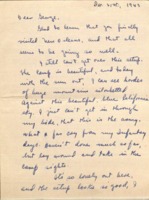 Dec 31st, 1943
Dear George,
Glad to learn that you finally
and that all
seem to be going so well.
I still can't get over this setup.
The camp is beautiful, and today
with the sun out, I can see hordes
of large mountains silhouetted
against this beautiful blue California
sky. I just can't get it through
my head, that this is the army.
What a far cry from my Infantry
days. Haven't done much so far,
but lay around and take in the
camp sights.
It's so lovely out here,
and the setup looks so good, I